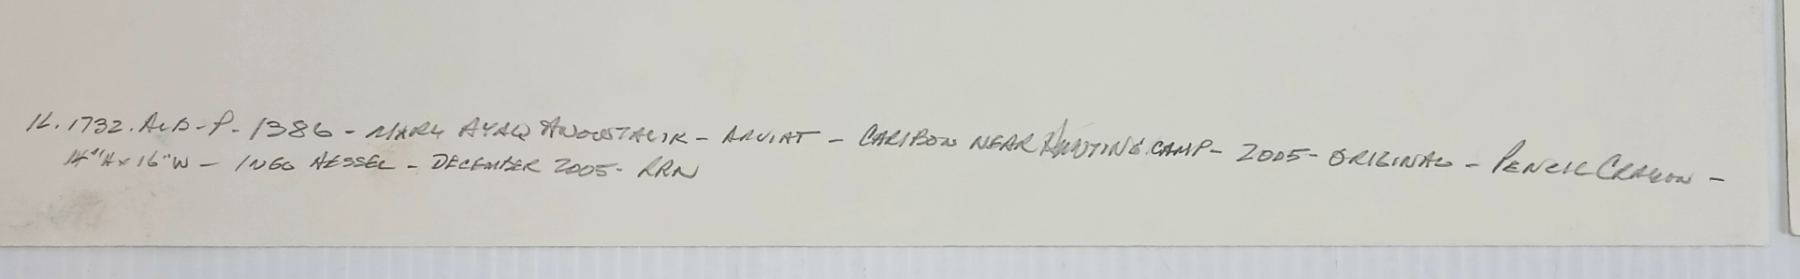 IL. 1732. ALB-P- 1386 - MARY AYAQ ANOWTALIK - ARVIAT - CARIBOU NEAR HUNTING CAMP - 2005 - ORIGINAL - PENCIL CRAYON -
14"H x 16"W - INGO HESSEL - DECEMBER 2005 - RRN